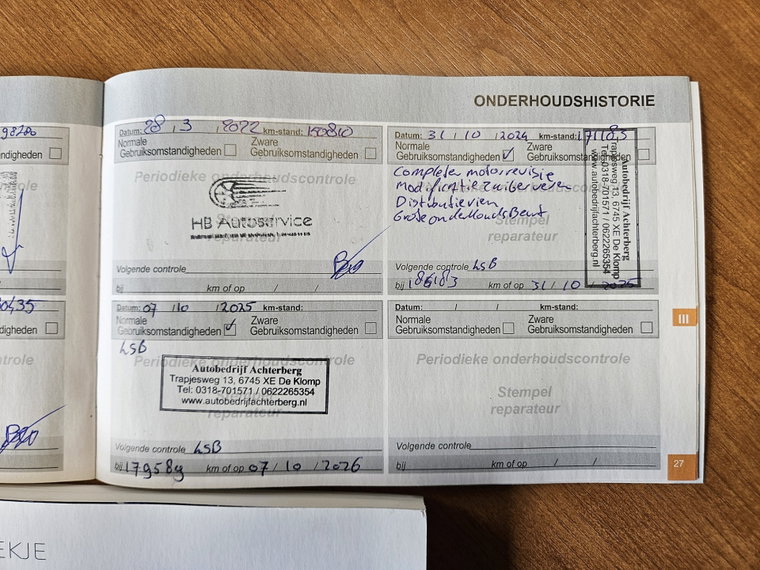 ONDERHOUDSHISTORIE
98200
standigheden
Datum: 28 / 3 / 2022 km-stand:
Normale Gebruiksomstandigheden
Zware Gebruiksomstandigheden
Periodieke onderhoudscontrole
HB Autoservice
Stempel
reparateur
Volgende controle
bij km of op / /
Datum: 31 / 10 / 2024 km-stand: 171183
Normale Gebruiksomstandigheden
Zware Gebruiksomstandigheden
Complete motorrevisie
modificatie zuigerveren
Distributierien
Grote onderhoudsBeurt
Periodieke onderhoudscontrole
Stempel
reparateur
Autobedrijf Achterberg
Trapjesweg 13, 6745 XE De Klomp
Tel: 0318-701571 / 0622265354
www.autobedrijfachterberg.nl
Volgende controle LSB
bij 186183 km of op 31 / 10 / 2025
0435
standigheden
Datum: 07 / 10 / 2025 km-stand:
Normale Gebruiksomstandigheden
Zware Gebruiksomstandigheden
LSB
Periodieke onderhoudscontrole
Autobedrijf Achterberg
Trapjesweg 13, 6745 XE De Klomp
Tel: 0318-701571 / 0622265354
www.autobedrijfachterberg.nl
reparateur
Volgende controle LSB
bij 179589 km of op 07 / 10 / 2026
Datum: / / km-stand:
Normale Gebruiksomstandigheden
Zware Gebruiksomstandigheden
Periodieke onderhoudscontrole
Stempel
reparateur
Volgende controle
bij km of op / /
III
27
EKJE